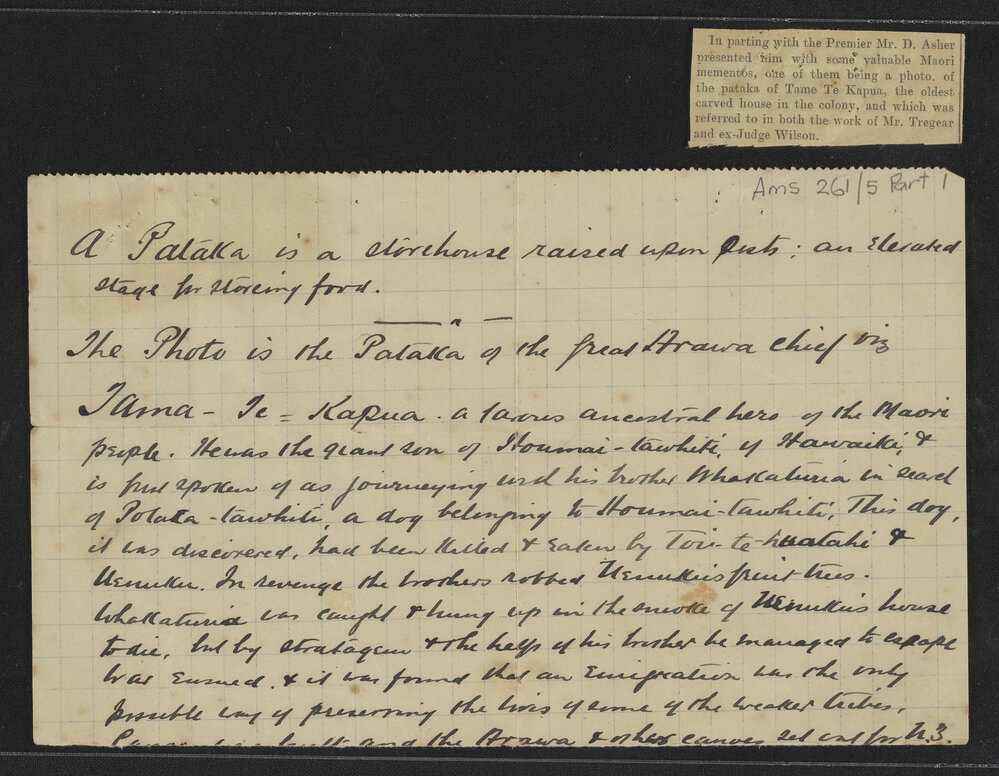 In parting with the Premier Mr. D. Asher
presented him with some valuable Maori
mementos, one of them being a photo. of
the pataka of Tame Te Kapua, the oldest
carved house in the colony, and which was
referred to in both the work of Mr. Tregear
and ex-Judge Wilson.
Ams 261/5 Part 1
A Pataka is a storehouse raised upon posts; an Elevated
stage for storeing food.
The Photo is the Pataka of the great Arawa chief viz
Tama-Te=Kapua. a famous ancestral hero of the Maori
people. He was the giant son of Houmai-tawhiti, of Hawaiki, &
is first spoken of as journeying with his brother Whakaturia in search
of Potaka-tawhiti, a dog belonging to Houmai-tawhiti, This dog,
it was discovered, had been Killed & Eaten by Toi-te-huatahi &
Uenuku. In revenge the brothers robbed Uenuku's fruit trees.
Whakaturia was caught & hung up in the smoke of Uenuku's house
to die, but by stratagem & the help of his brother he managed to escape
War Ensued, & it was found that an Emigration was the only
possible way of preserving the lives of some of the weaker tribes,
built and the Arawa & other canoes set out for N.Z.